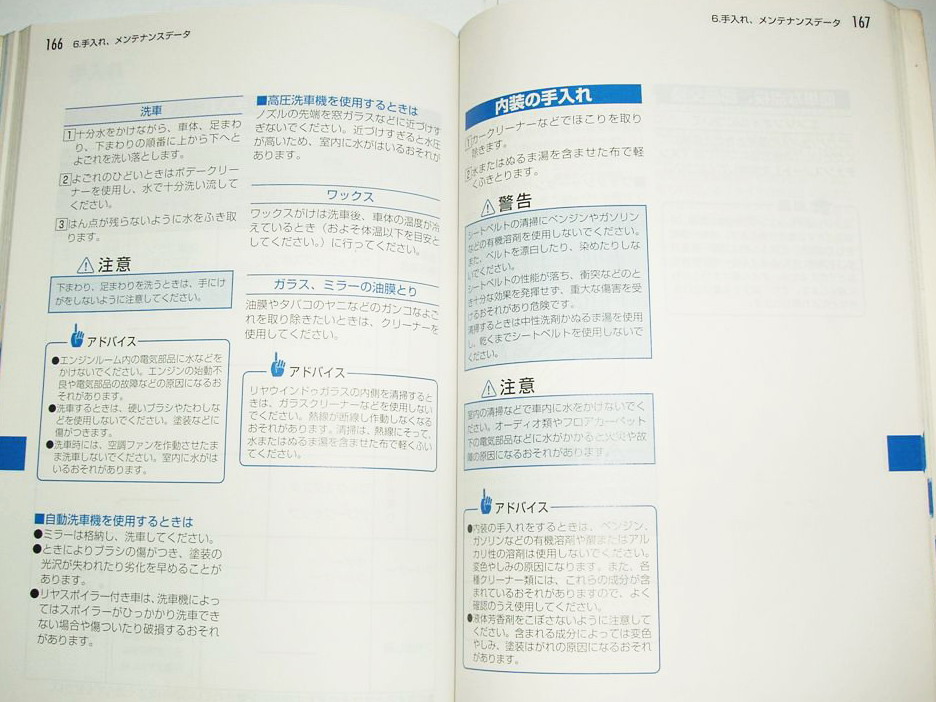 166 6.手入れ、メンテナンスデータ
洗車
1 十分水をかけながら、車体、足まわ
り、下まわりの順番に上から下へと
よごれを洗い落とします。
2 よごれのひどいときはボデークリー
ナーを使用し、水で十分洗い流して
ください。
3 はん点が残らないように水をふき取
ります。
注意
下まわり、足まわりを洗うときは、手にけ
がをしないように注意してください。
アドバイス
●エンジンルーム内の電気部品に水などを
かけないでください。エンジンの始動不
良や電気部品の故障などの原因になるお
それがあります。
●洗車するときは、硬いブラシやたわしな
どを使用しないでください。塗装などに
傷がつきます。
●洗車時には、空調ファンを作動させたま
ま洗車しないでください。室内に水がは
いるおそれがあります。
■自動洗車機を使用するときは
●ミラーは格納し、洗車してください。
●ときによりブラシの傷がつき、塗装の
光沢が失われたり劣化を早めることが
あります。
●リヤスポイラー付き車は、洗車機によっ
てはスポイラーがひっかかり洗車でき
ない場合や傷ついたり破損するおそれ
があります。
■高圧洗車機を使用するときは
ノズルの先端を窓ガラスなどに近づけす
ぎないでください。近づけすぎると水圧
が高いため、室内に水がはいるおそれが
あります。
ワックス
ワックスがけは洗車後、車体の温度が冷
えているとき（およそ体温以下を目安と
してください。）に行ってください。
ガラス、ミラーの油膜とり
油膜やタバコのヤニなどのガンコなよご
れを取り除きたいときは、クリーナーを
使用してください。
アドバイス
リヤウインドゥガラスの内側を清掃すると
きは、ガラスクリーナーなどを使用しない
でください。熱線が断線し作動しなくなる
おそれがあります。清掃は、熱線にそって、
水またはぬるま湯を含ませた布で軽くふい
てください。
6.手入れ、メンテナンスデータ 167
内装の手入れ
1 カークリーナーなどでほこりを取り
除きます。
2 水またはぬるま湯を含ませた布で軽
くふきとります。
警告
シートベルトの清掃にベンジンやガソリン
などの有機溶剤を使用しないでください。
また、ベルトを漂白したり、染めたりしな
いでください。
シートベルトの性能が落ち、衝突などのと
き十分な効果を発揮せず、重大な傷害を受
けるおそれがあり危険です。
清掃するときは中性洗剤かぬるま湯を使用
し、乾くまでシートベルトを使用しないで
ください。
注意
室内の清掃などで車内に水をかけないでく
ださい。オーディオ類やフロアカーペット
下の電気部品などに水がかかると火災や故
障の原因になるおそれがあります。
アドバイス
●内装の手入れをするときは、ベンジン、
ガソリンなどの有機溶剤や酸またはアル
カリ性の溶剤は使用しないでください。
変色やしみの原因になります。また、各
種クリーナー類には、これらの成分が含
まれているおそれがありますので、よく
確認のうえ使用してください。
●液体芳香剤をこぼさないように注意して
ください。含まれる成分によっては変色
やしみ、塗装はがれの原因になるおそれ
があります。